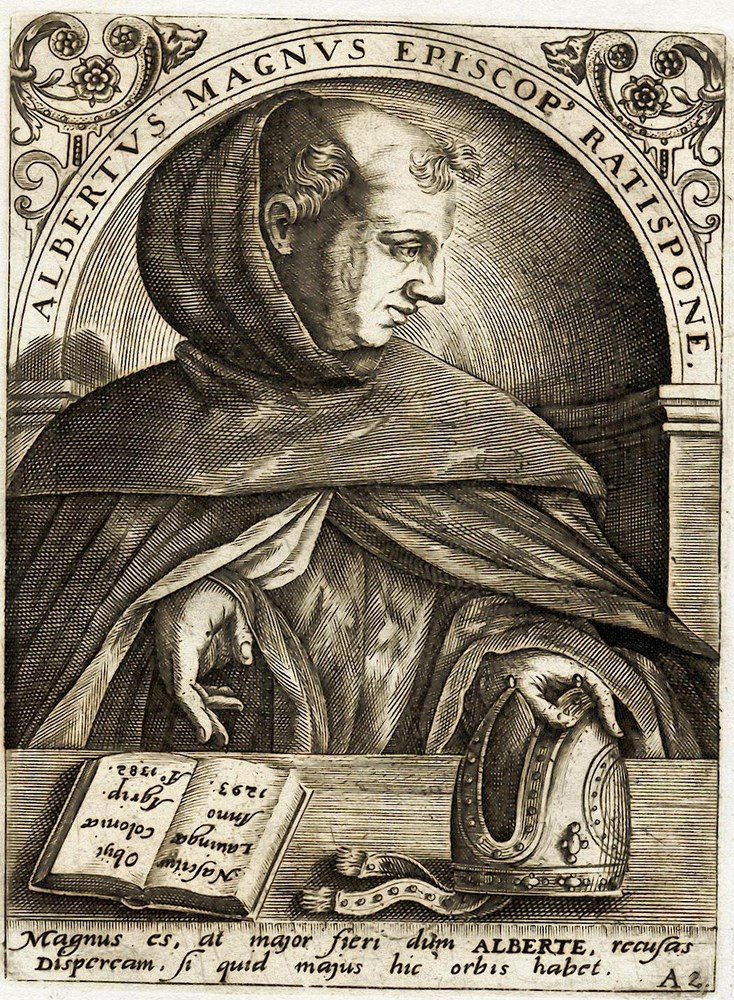 ALBERTVS MAGNVS EPISCOP' RATISPONE.
Nascitur
Lauingæ
Anno
1293.
Obijt
Coloniæ
Agrip.
Aº 1382.
Magnus es, at major fieri dum ALBERTE, recusas
Dispeream, si quid majus hic orbis habet.
A 2.